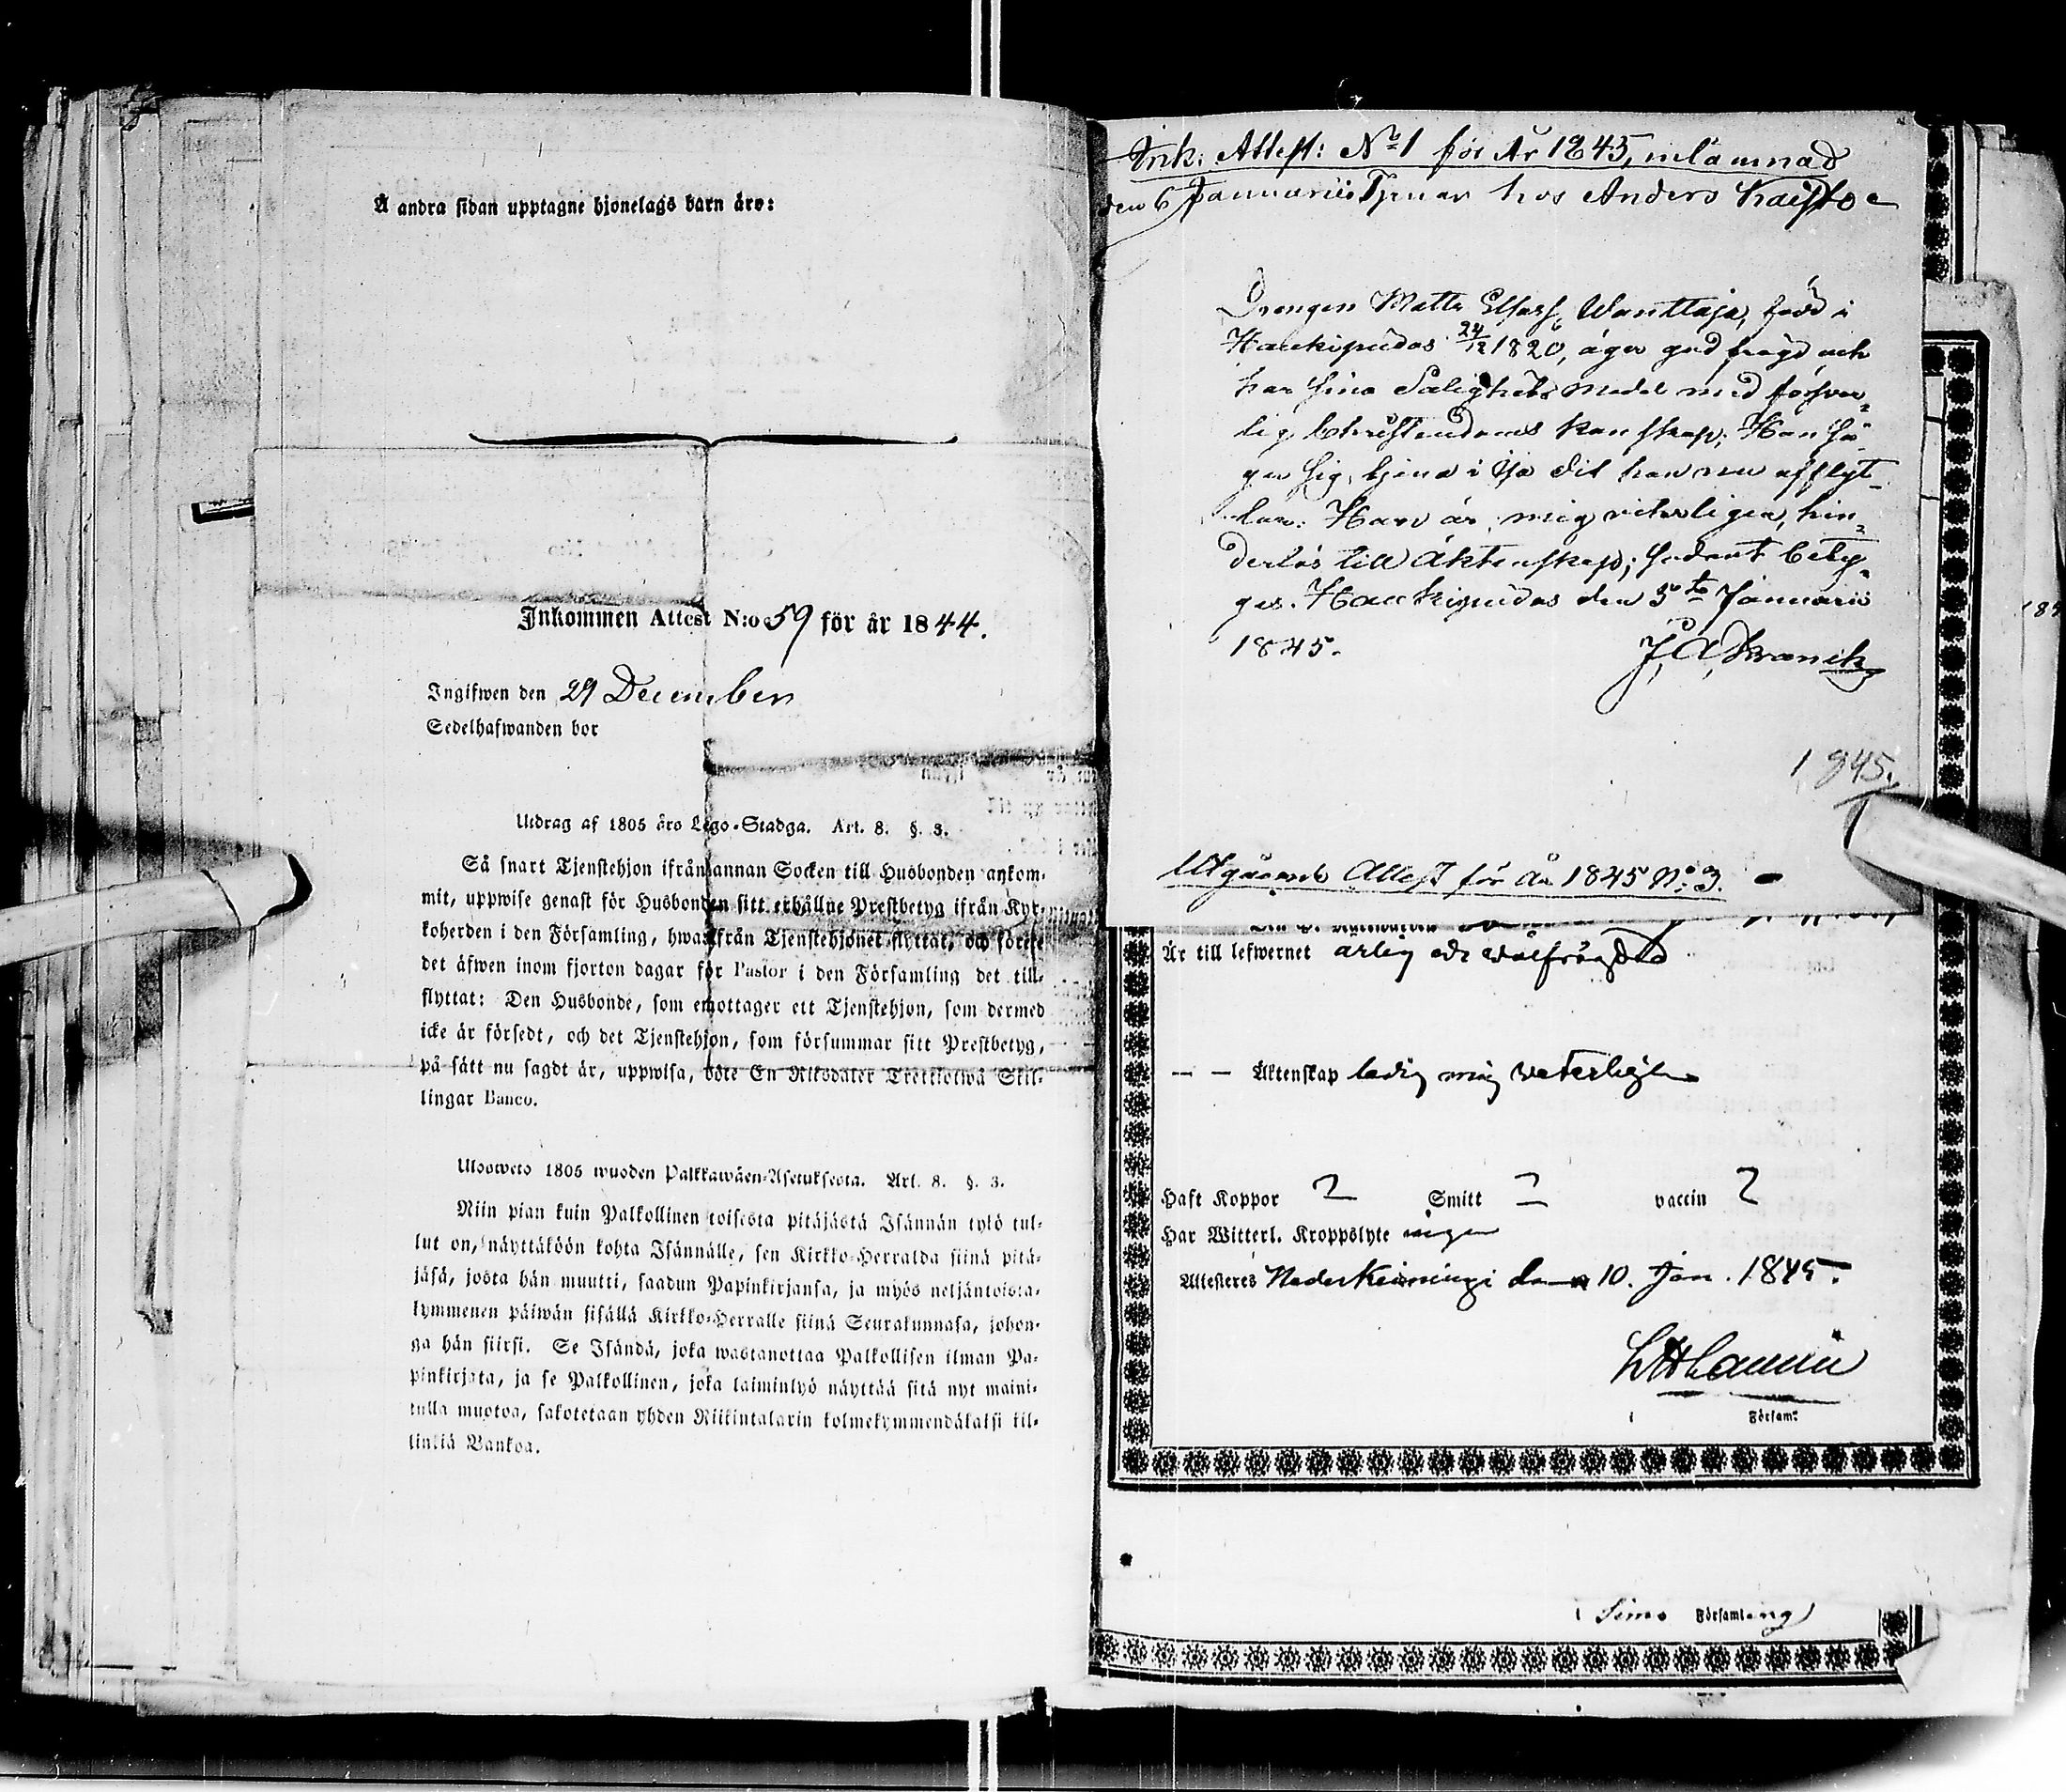 Å andra sidan upptagne hjonelags barn äro:
Inkommen Attest N:o 59 för år 1844.
Ingifwen den 29 December
Sedelhafwanden bor
Utdrag af 1805 års Lego-Stadga. Art. 8. §. 3.
Så snart Tjenstehjon ifrån annan Socken till Husbonden ankom-
mit, uppwise genast för Husbonden sitt erhållne Prestbetyg ifrån Kyr-
koherden i den Församling, hwarifrån Tjenstehjonet flyttat, och förete
det äfwen inom fjorton dagar för Pastor i den Församling det till-
flyttat: Den Husbonde, som emottager ett Tjenstehjon, som dermed
icke är försedt, och det Tjenstehjon, som försummar sitt Prestbetyg,
på sätt nu sagdt är, uppwisa, böte En Riksdaler Trettiotwå Skil-
lingar Banco.
Ulosweto 1805 wuoden Palkkawäen-Asetuksesta. Art. 8. §. 3.
Niin pian kuin Palkollinen toisesta pitäjästä Isännän tykö tul-
lut on, näyttäköön kohta Isännälle, sen Kirkko-Herralda siinä pitä-
jäsä, josta hän muutti, saadun Papinkirjansa, ja myös neljäntoista-
kymmenen päiwän sisällä Kirkko-Herralle siinä Seurakunnasa, johon-
ga hän siirsi. Se Isändä, joka wastanottaa Palkollisen ilman Pa-
pinkirjata, ja se Palkollinen, joka laiminlyö näyttää sitä nyt maini-
tulla muotoa, sakotetaan yhden Riikintalarin kolmekymmendäkaksi kil-
linkiä Bankoa.
Ink. Attest: No 1 för År 1845, inlämnad
den 6 Januarii Tjenar hos Anders Kaisto
Drengen Matts Elfasf. Wanttaja, född i
Haukipudas 24/12 1820, äger god frägd och
har sina Salighets medel med försvar-
lig Christendoms kunskap; Han sä-
ger sig tjena i Ijo dit han nu afflyt-
tar. Han är, mig veterligen, hin-
derlös till Äktenskap; sådant bety-
ges. Haukipudas den 5te Januarii
1845. J. A. Franck
1845.
Utgående Attest för År 1845 No: 3.
Är till lefwernet ärlig och välfrägdad
— — Äktenskap ledig mig veterligen
Haft Koppor ? Smitt ? vaccin ?
Har Witterl. Kroppslyte ingen
Attesteres Nederkiiminge den 10. Jan. 1845.
Försam:
i Simo Församling)